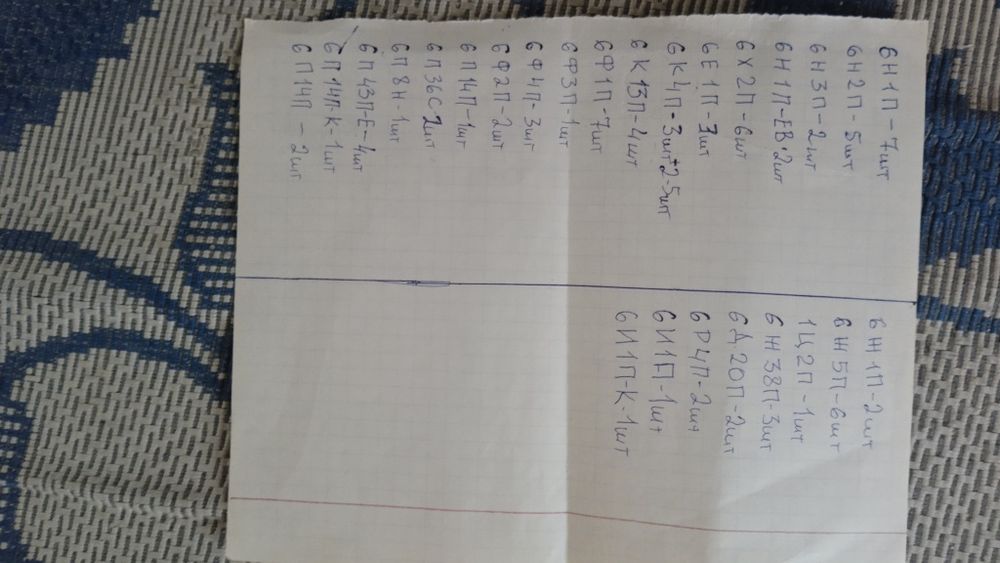 6Н1П-7шт
6Н2П-5шт
6Н3П-2шт
6Н1П-ЕВ-2шт
6Х2П-6шт
6Е1П-3шт
6К4П-3шт+2-5шт
6К13П-4шт
6Ф1П-7шт
6Ф3П-1шт
6Ф4П-3шт
6Ф2П-2шт
6П14П-1шт
6П36С-2шт
6П8Н-1шт
6П43П-Е-4шт
6П14П-К-1шт
6П14П-2шт
6Ж1П-2шт
6Ж5П-6шт
1Ц2П-1шт
6Ж38П-3шт
6Д20П-2шт
6Р4П-2шт
6И1П-1шт
6И1П-К-1шт